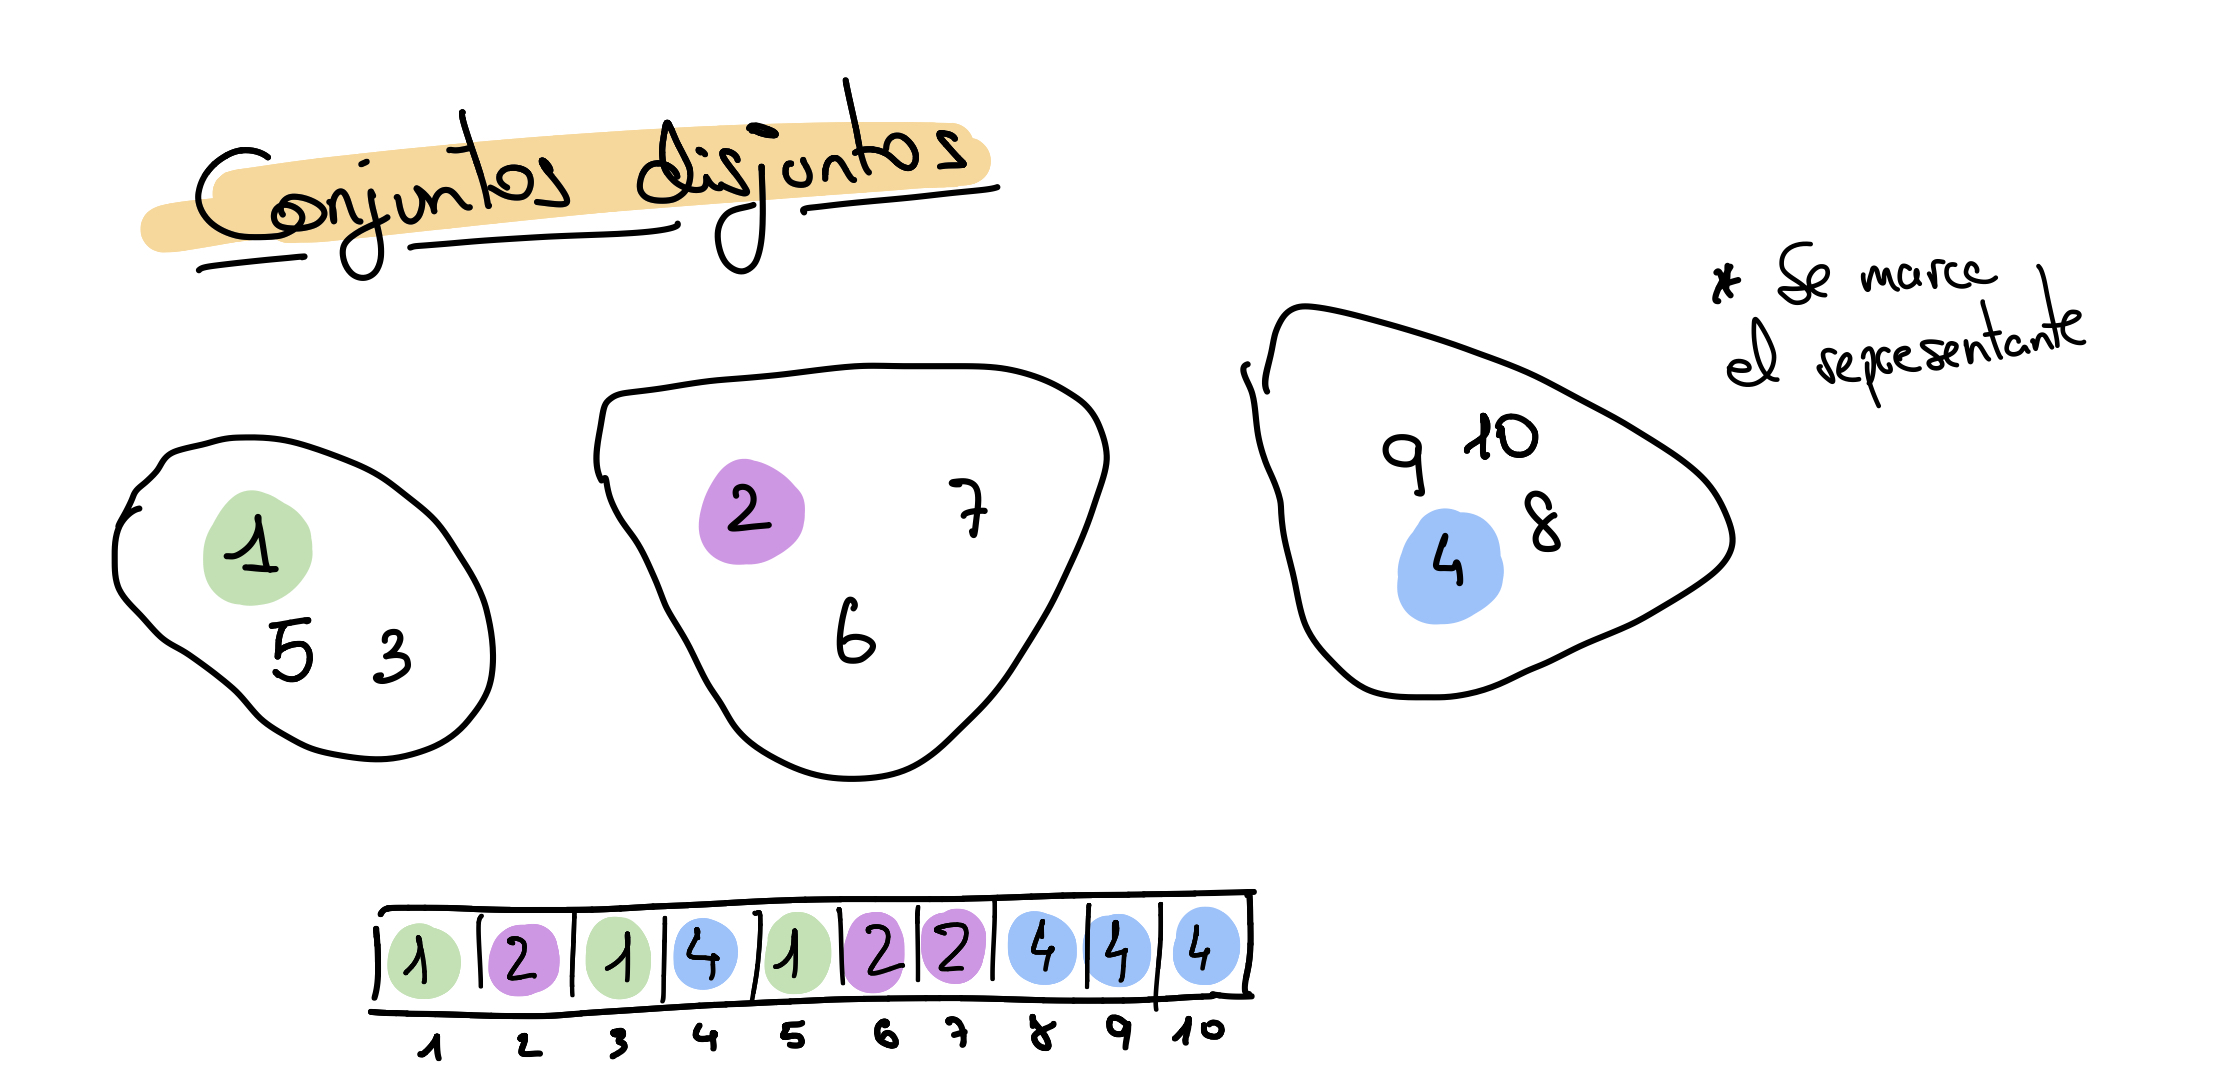 Conjuntos disjuntos
* Se marca
el representante
1
5 3
2 7
6
9 10
8
4
1 2 1 4 1 2 2 4 4 4
1 2 3 4 5 6 7 8 9 10